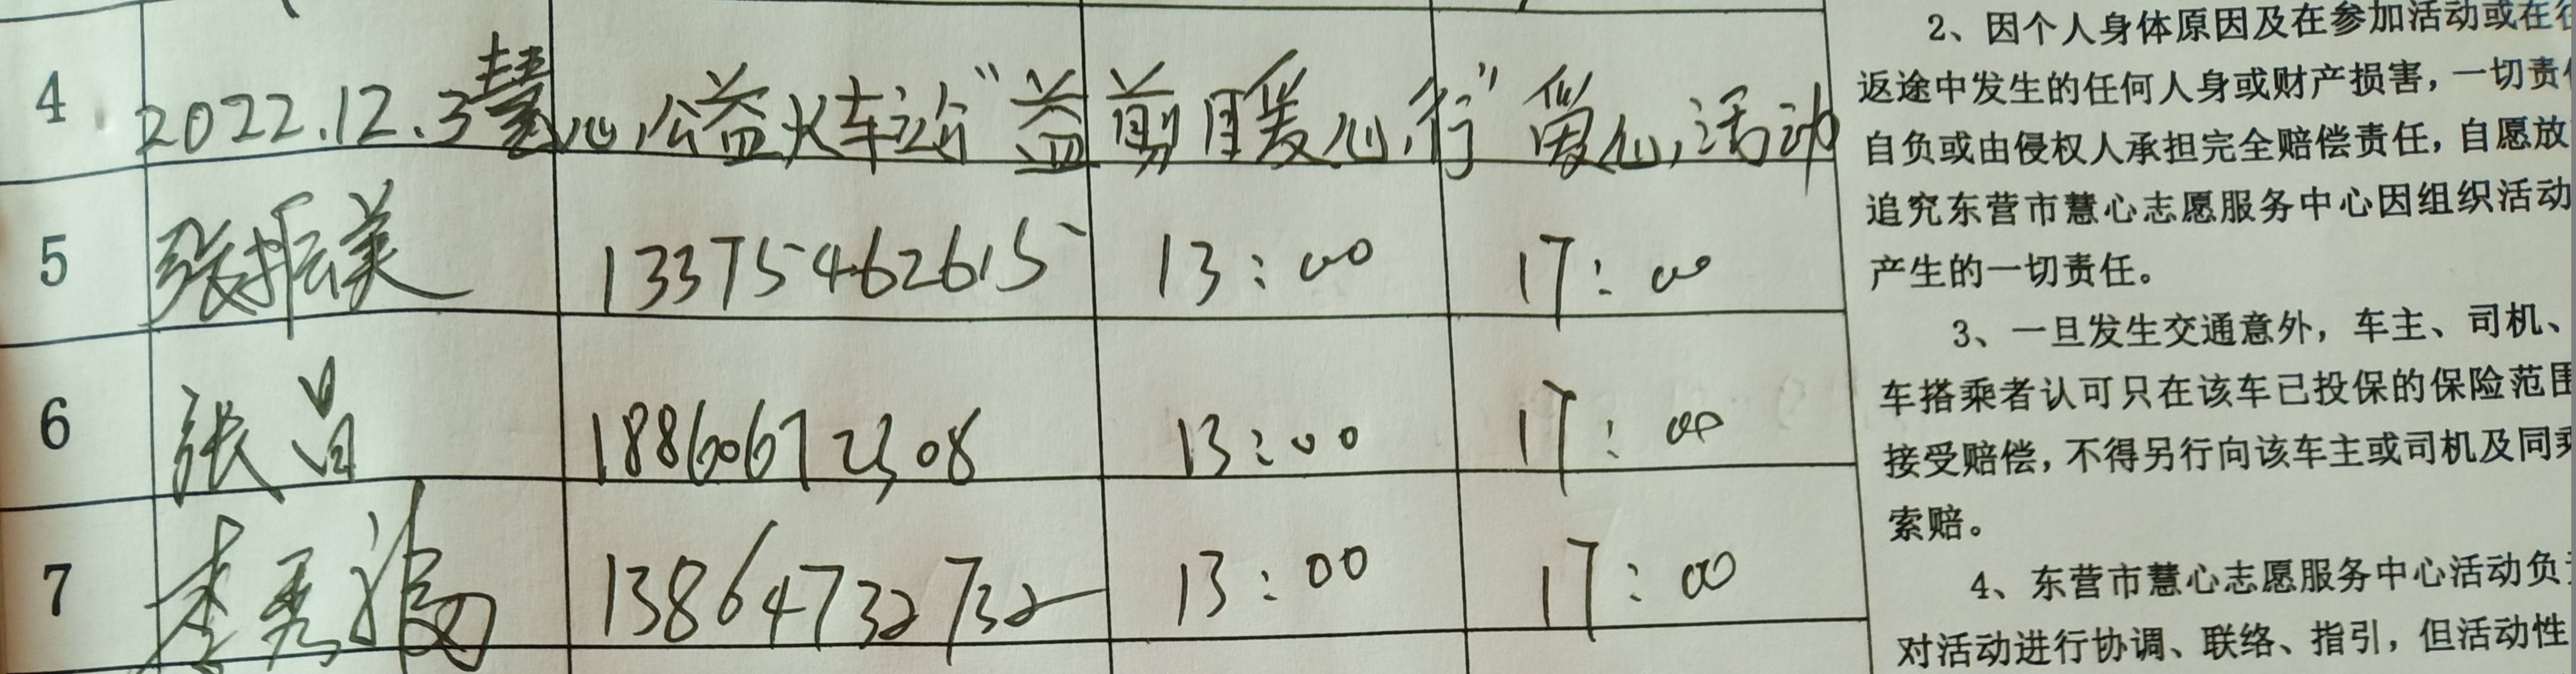 4 2022.12.3慧心公益火车站“益剪暖心行”爱心活动
5 张振美 13375462615 13:00 17:00
6 张昌 18860672308 13:00 17:00
7 李秀 13864732732 13:00 17:00
2、因个人身体原因及在参加活动或在往
返途中发生的任何人身或财产损害，一切责任
自负或由侵权人承担完全赔偿责任，自愿放
追究东营市慧心志愿服务中心因组织活动
产生的一切责任。
3、一旦发生交通意外，车主、司机、
车搭乘者认可只在该车已投保的保险范围
接受赔偿，不得另行向该车主或司机及同乘
索赔。
4、东营市慧心志愿服务中心活动负责
对活动进行协调、联络、指引，但活动性